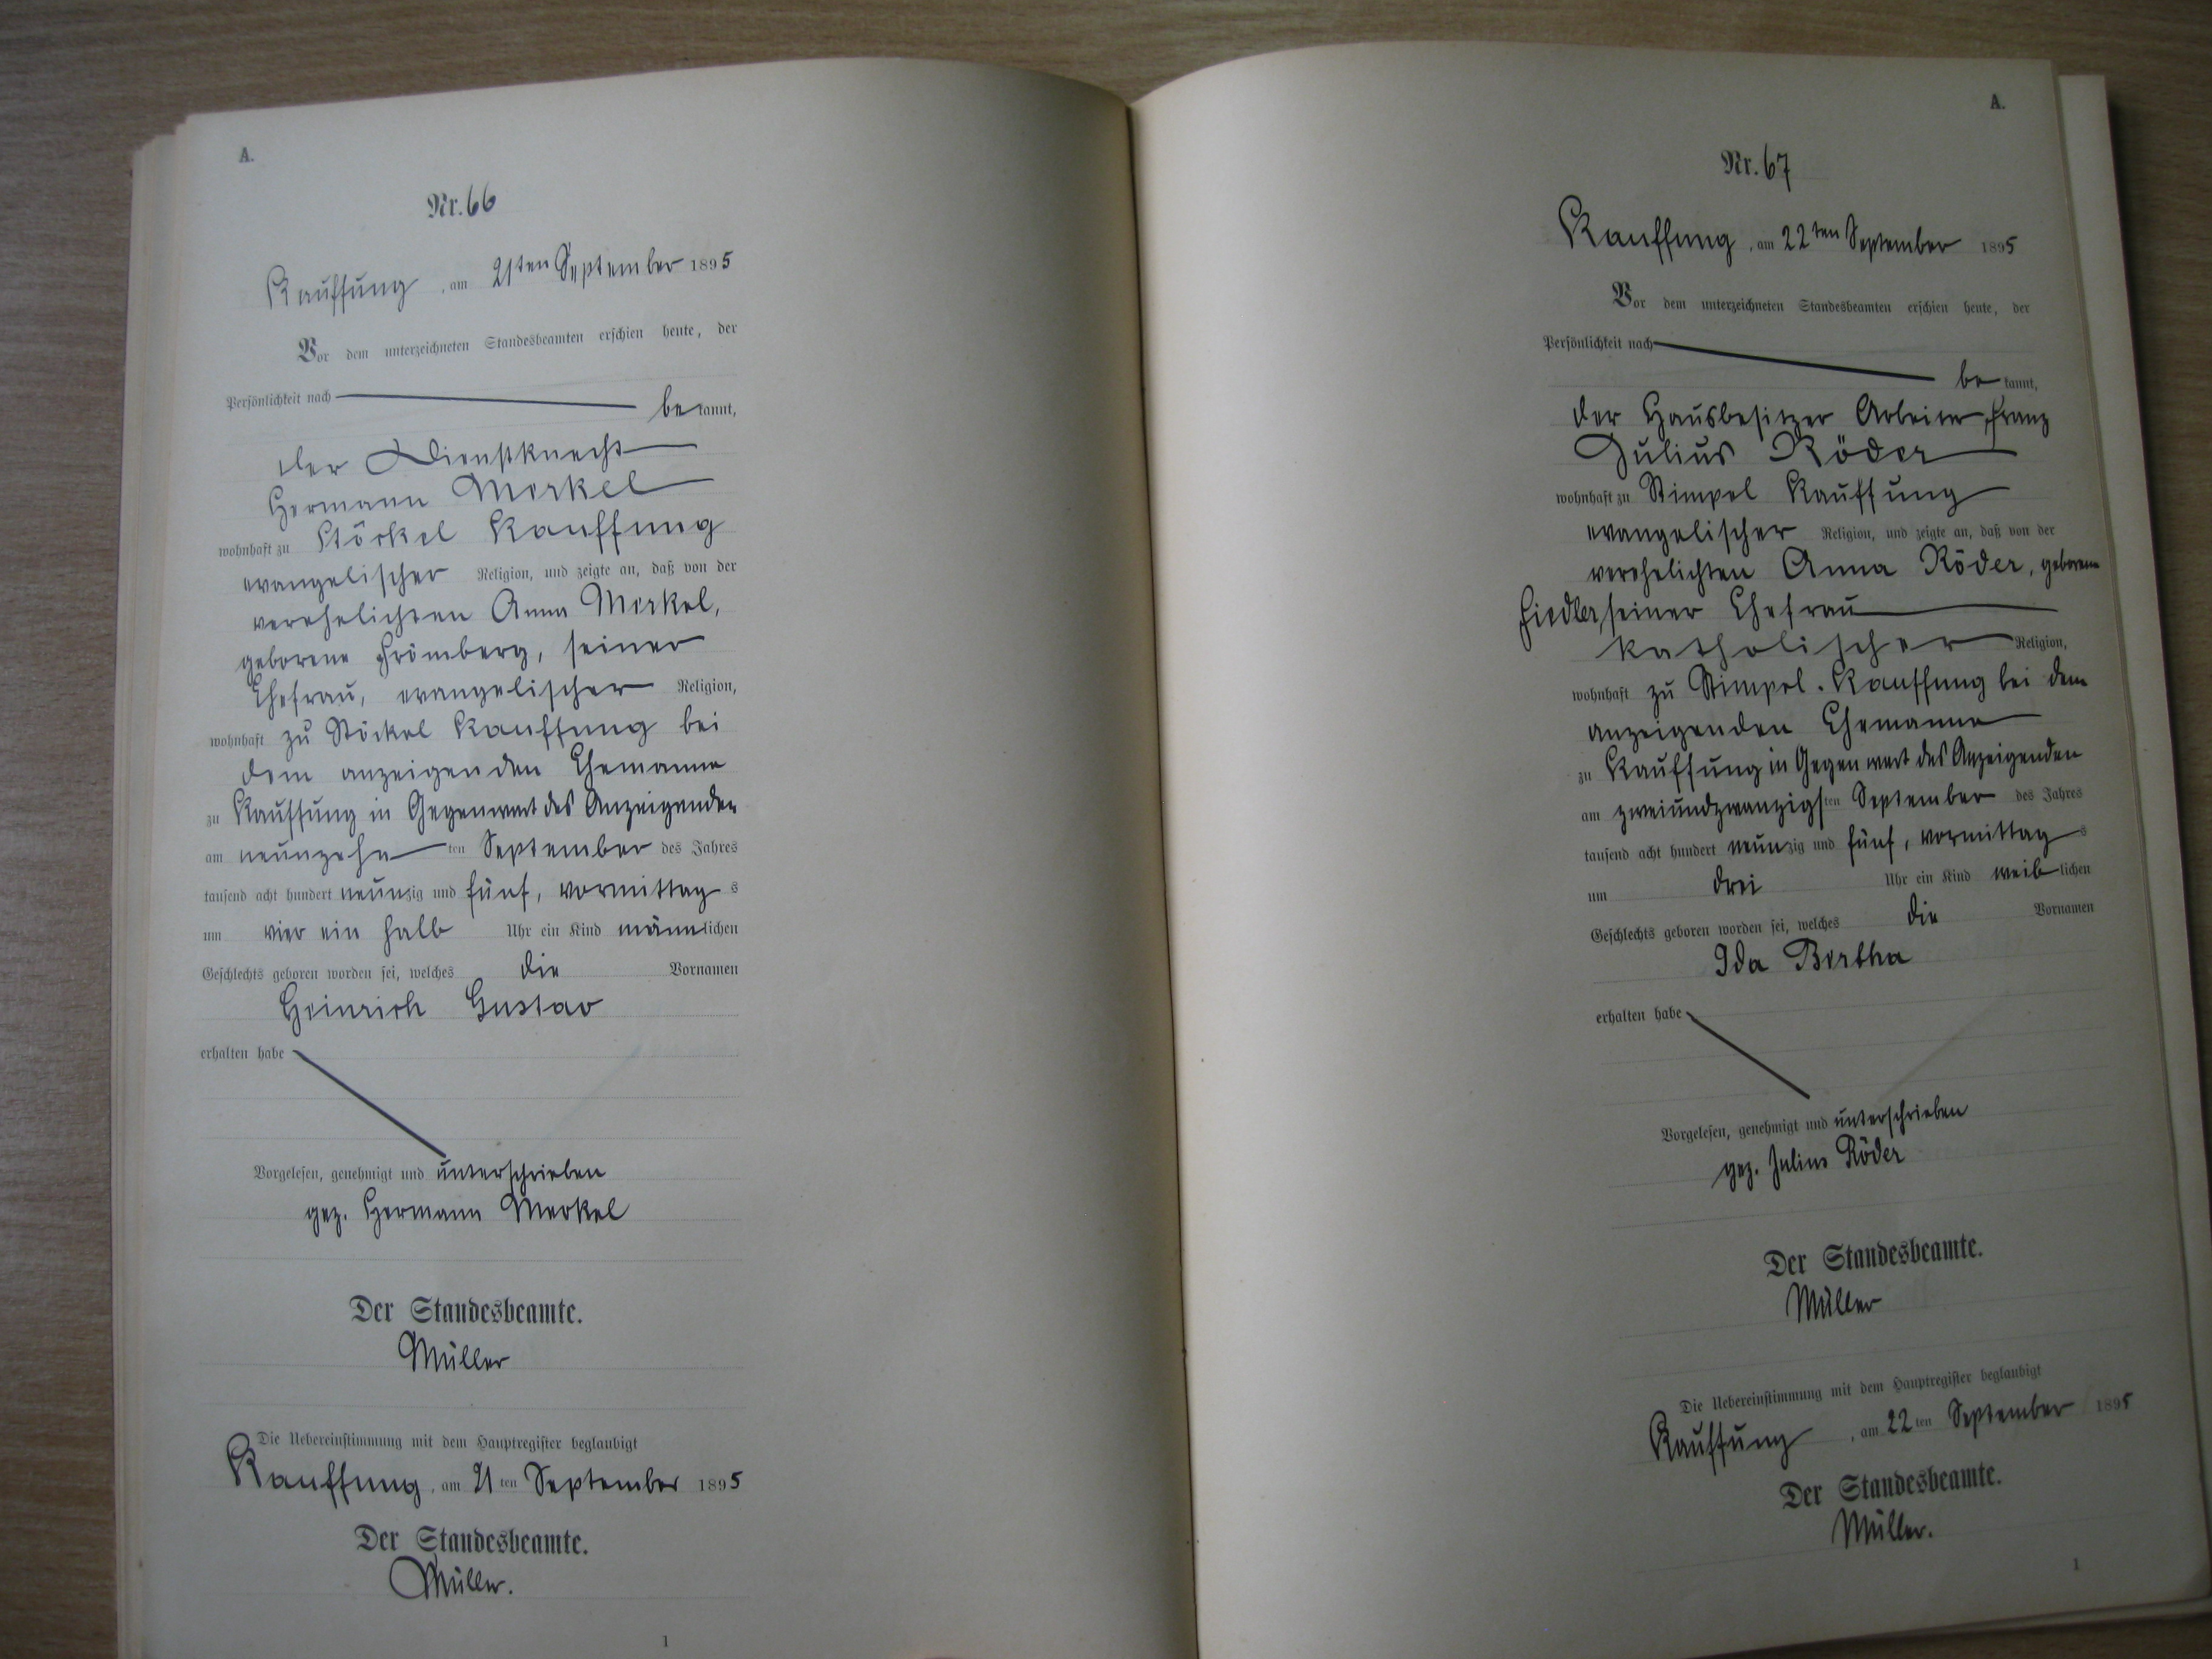 A.
Nr. 66
Kauffung, am 21ten September 1895
Vor dem unterzeichneten Standesbeamten erschien heute, der
Persönlichkeit nach
bekannt,
der Dienstknecht
Hermann Merkel
wohnhaft zu Stöckel Kauffung
evangelischer Religion, und zeigte an, daß von der
verehelichten Anna Merkel,
geborene Frömberg, seiner
Ehefrau, evangelischer Religion,
wohnhaft zu Stöckel Kauffung bei
dem anzeigenden Ehemanne
zu Kauffung in Gegenwart des Anzeigenden
am neunzehnten September des Jahres
tausend acht hundert neunzig und fünf, vormittags
um vier ein halb Uhr ein Kind männlichen
Geschlechts geboren worden sei, welches die Vornamen
Heinrich Gustav
erhalten habe
Vorgelesen, genehmigt und unterschrieben
gez. Hermann Merkel
Der Standesbeamte.
Müller
Die Uebereinstimmung mit dem Hauptregister beglaubigt
Kauffung, am 21ten September 1895
Der Standesbeamte.
Müller.
1
A.
Nr. 67
Kauffung, am 22ten September 1895
Vor dem unterzeichneten Standesbeamten erschien heute, der
Persönlichkeit nach
bekannt,
der Hausbesitzer Arbeiter Franz
Julius Röder
wohnhaft zu Stimpel Kauffung
evangelischer Religion, und zeigte an, daß von der
verehelichten Anna Röder, geborene
Fiedler, seiner Ehefrau
katholischer Religion,
wohnhaft zu Stimpel. Kauffung bei dem
anzeigenden Ehemanne
zu Kauffung in Gegenwart des Anzeigenden
am zweiundzwanzigsten September des Jahres
tausend acht hundert neunzig und fünf, vormittags
um drei Uhr ein Kind weiblichen
Geschlechts geboren worden sei, welches die Vornamen
Ida Bertha
erhalten habe
Vorgelesen, genehmigt und unterschrieben
gez. Julius Röder
Der Standesbeamte.
Müller
Die Uebereinstimmung mit dem Hauptregister beglaubigt
Kauffung, am 22ten September 1895
Der Standesbeamte.
Müller.
1